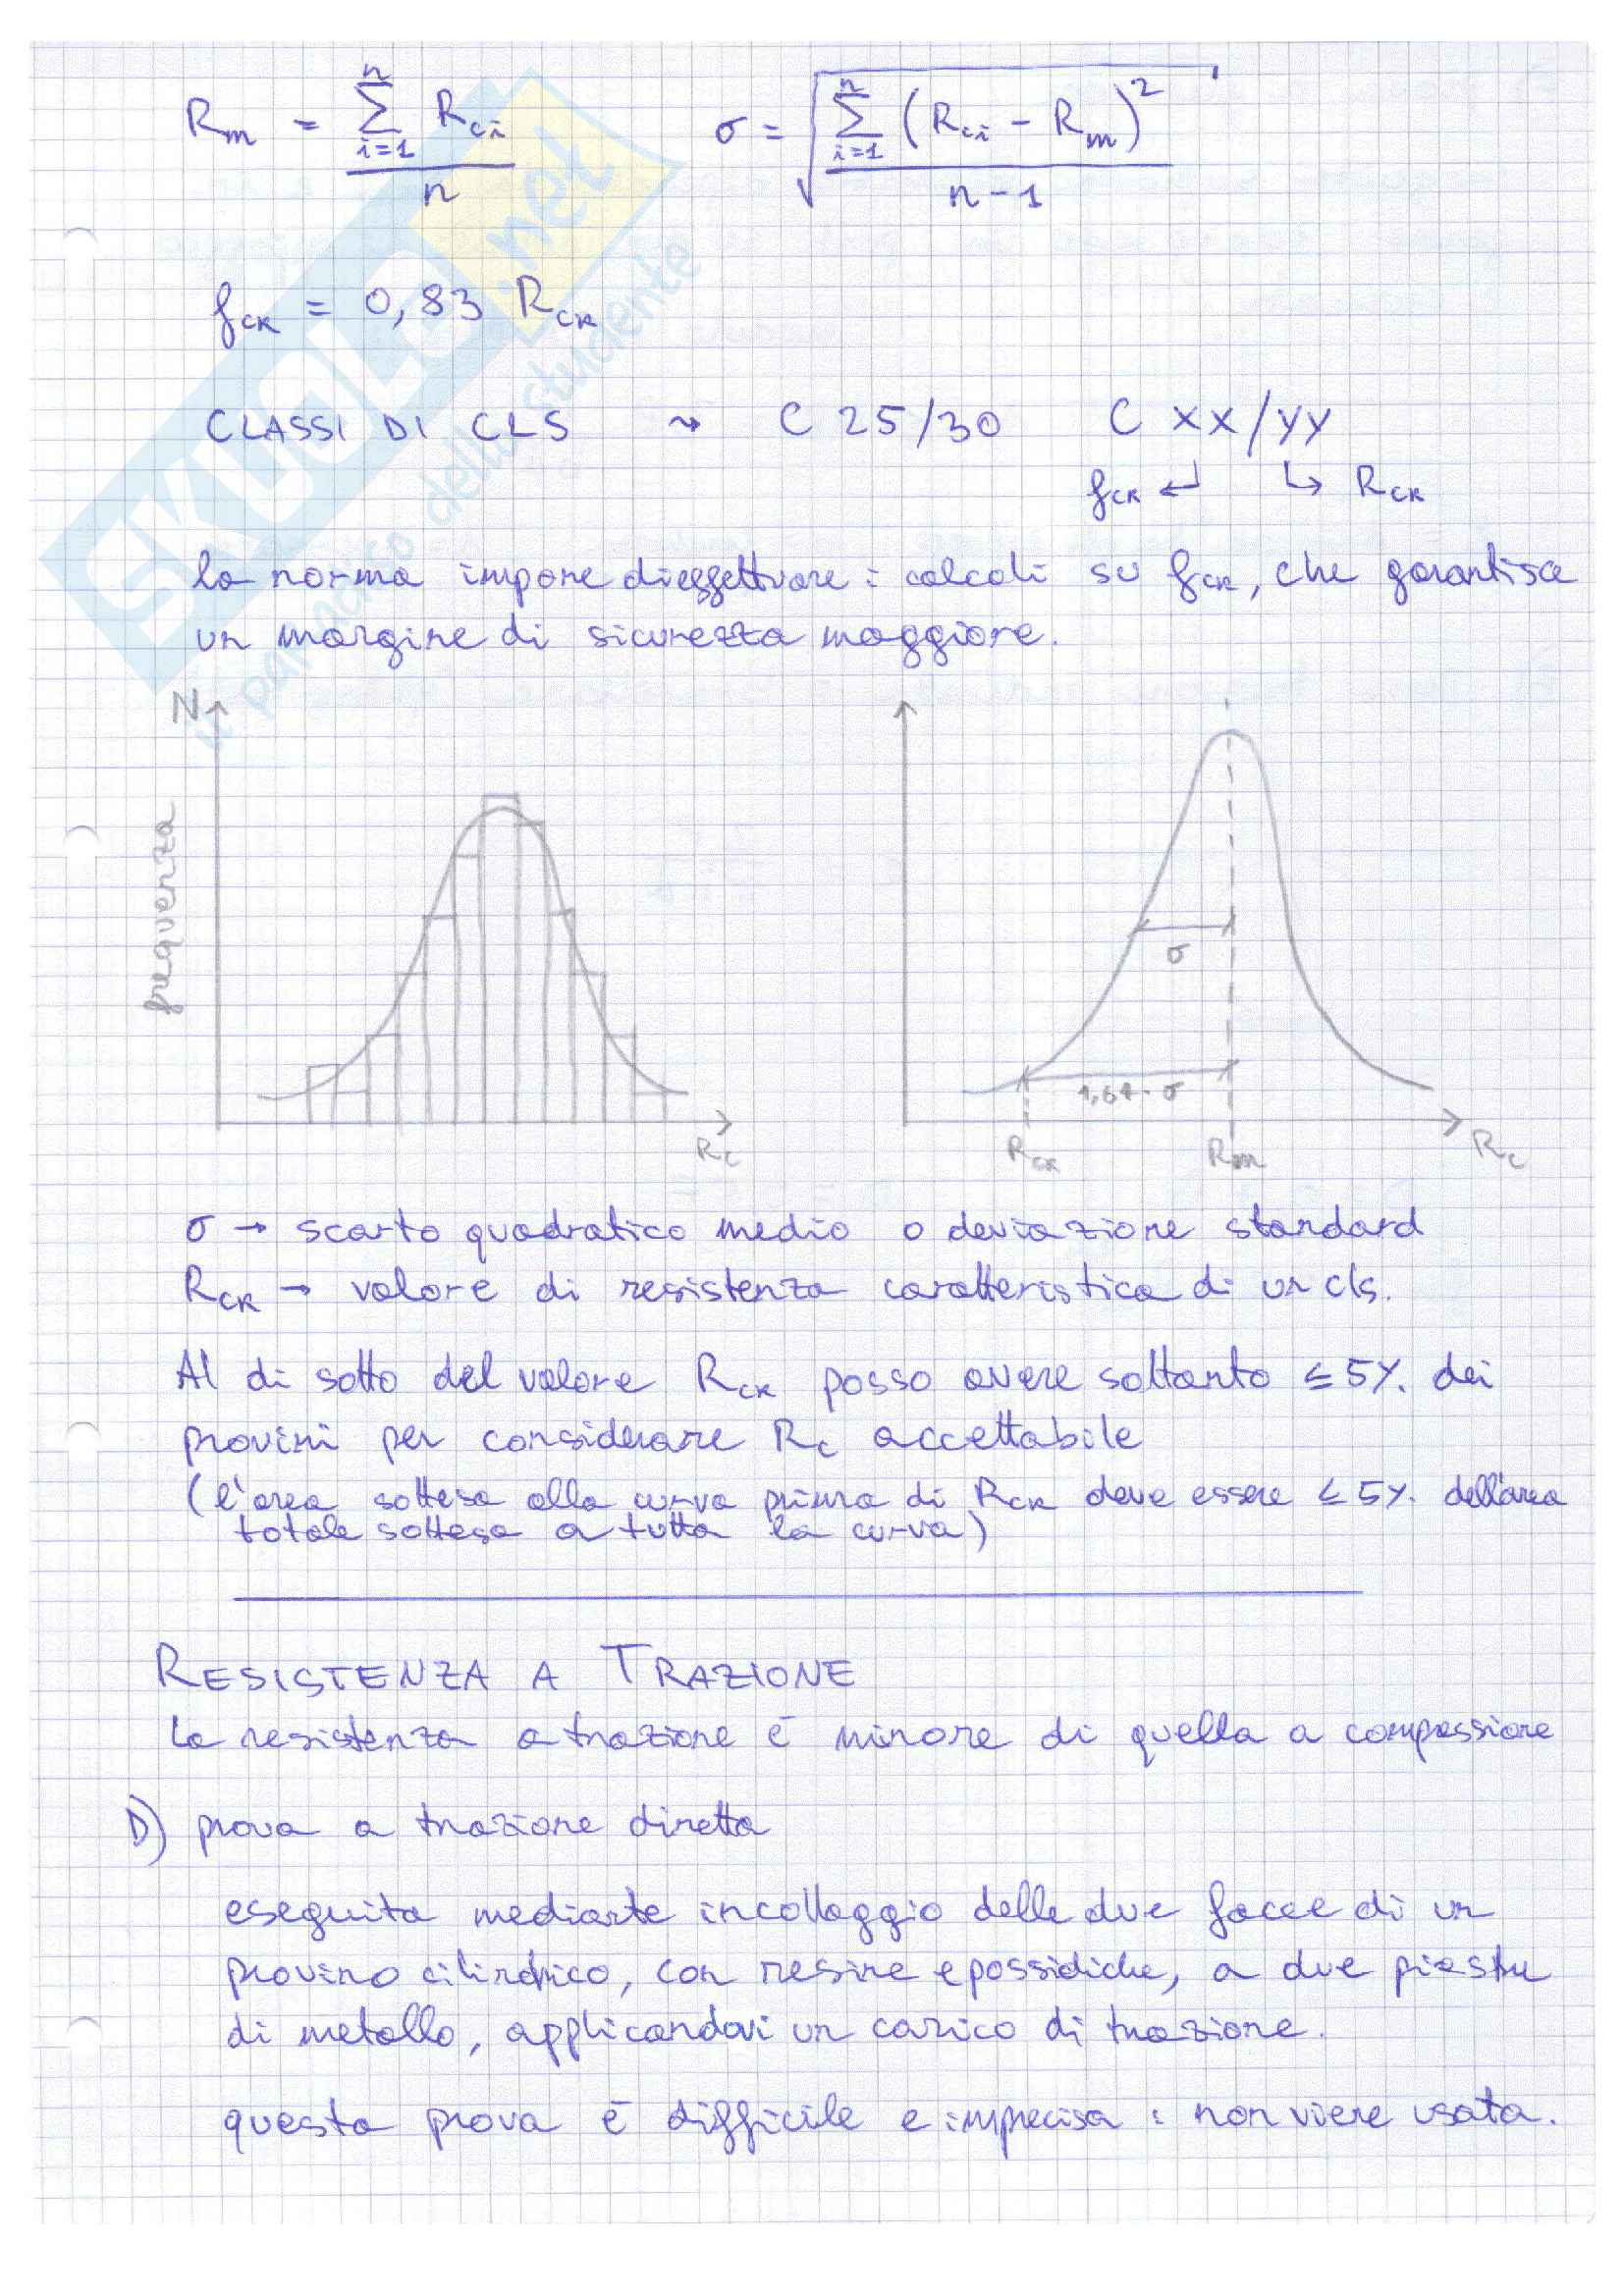 R_m = \frac{\sum_{i=1}^{n} R_{ci}}{n} σ = \sqrt{\frac{\sum_{i=1}^{n} (R_{ci} - R_m)^2}{n-1}}
f_{ck} = 0,83 R_{ck}
CLASSI DI CLS ⇝ C 25/30 C XX/YY
f_{ck} ↵ ↳ R_{ck}
la norma impone di effettuare i calcoli su f_{ck}, che garantisce
un margine di sicurezza maggiore.
N
frequenza
R_c
σ
1,64·σ
R_{ck} R_m R_c
σ → scarto quadratico medio o deviazione standard
R_{ck} → valore di resistenza caratteristica di un cls.
Al di sotto del valore R_{ck} posso avere soltanto ≤ 5% dei
provini per considerare R_c accettabile
(l'area sottesa alla curva prima di R_{ck} deve essere ≤ 5% dell'area
totale sottesa a tutta la curva)
RESISTENZA A TRAZIONE
La resistenza a trazione è minore di quella a compressione
D) prova a trazione diretta
eseguita mediante incollaggio delle due facce di un
provino cilindrico, con resine epossidiche, a due piastre
di metallo, applicandovi un carico di trazione.
questa prova è difficile e imprecisa : non viene usata.
SKUOLA.net
il paradiso dello studente